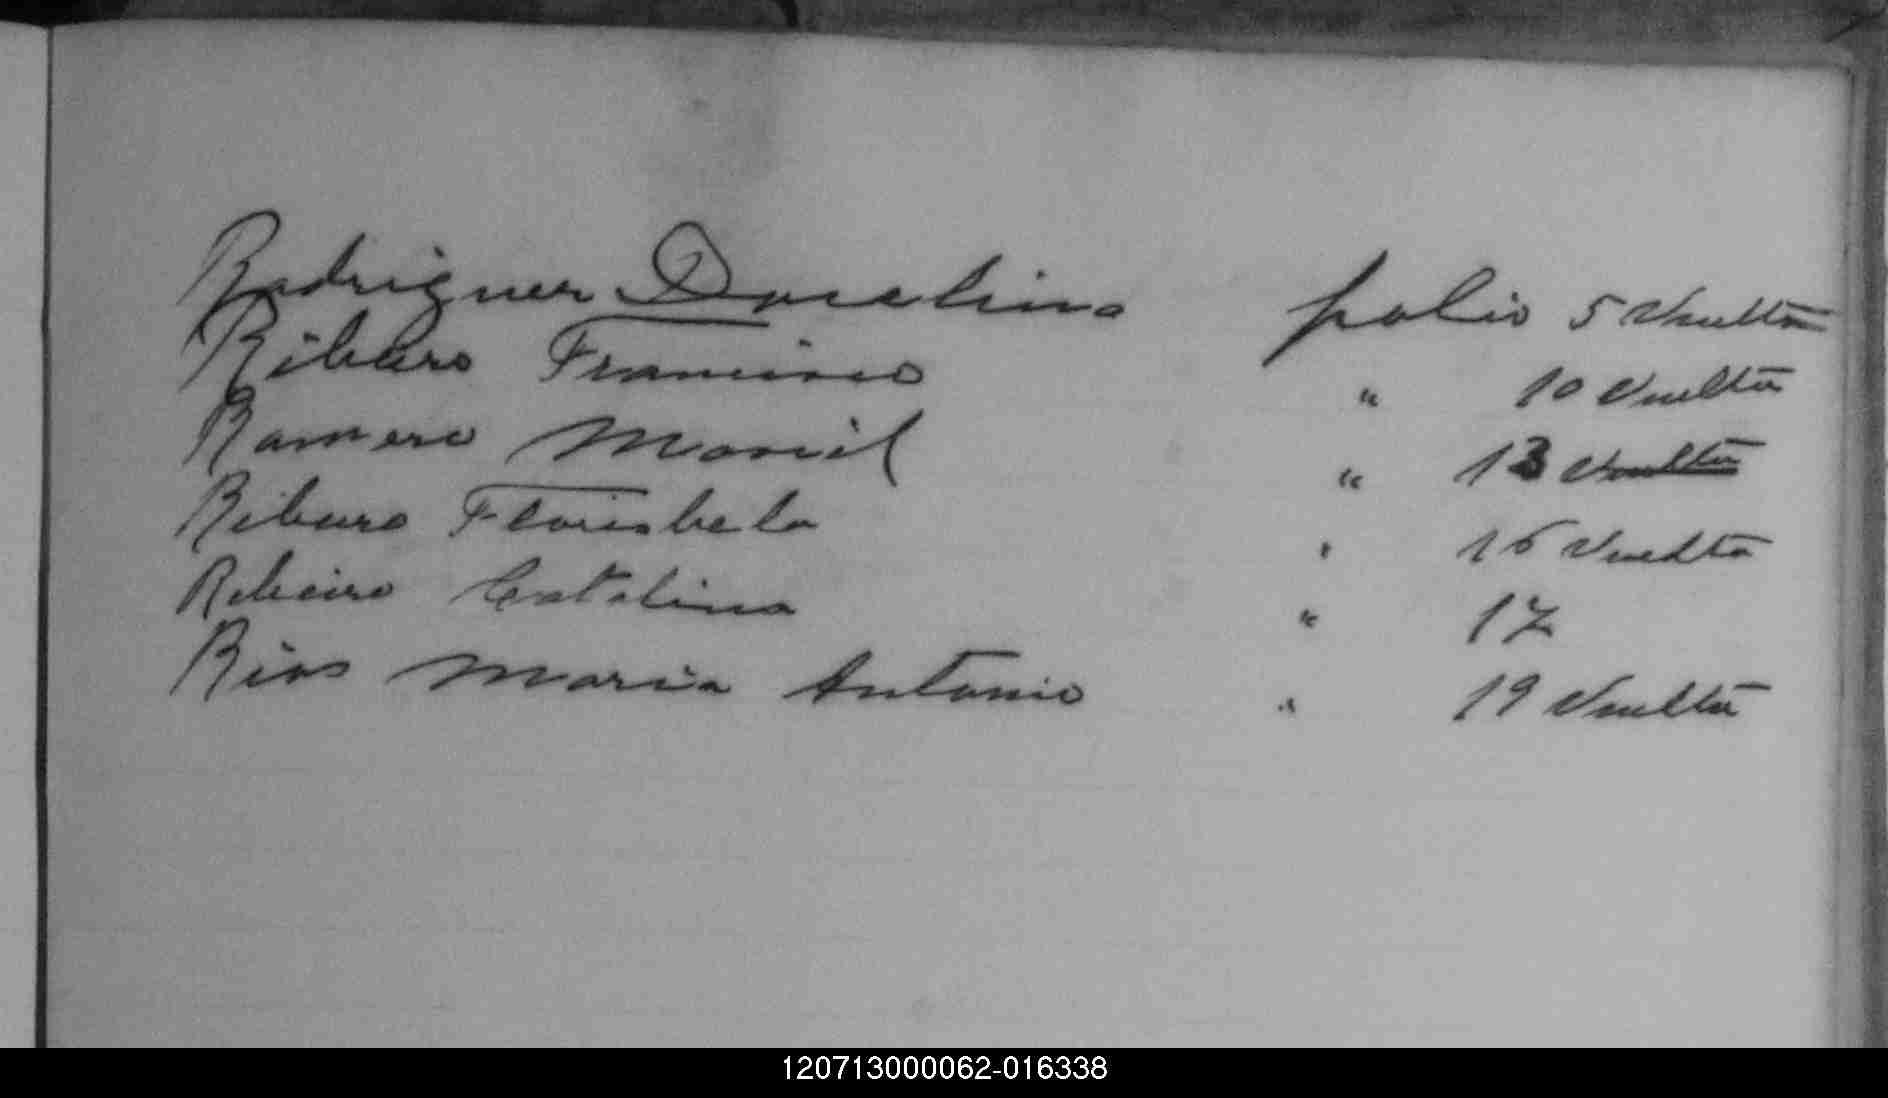 Rodriguez Docelina folio 5 Vuelta
Ribeiro Francisco " 10 Vuelta
Romero " 13 Vuelta
Ribeiro Florisbela " 16 Vuelta
Ribeiro Catalina " 17
Rios Maria Antonio " 19 Vuelta
120713000062-016338